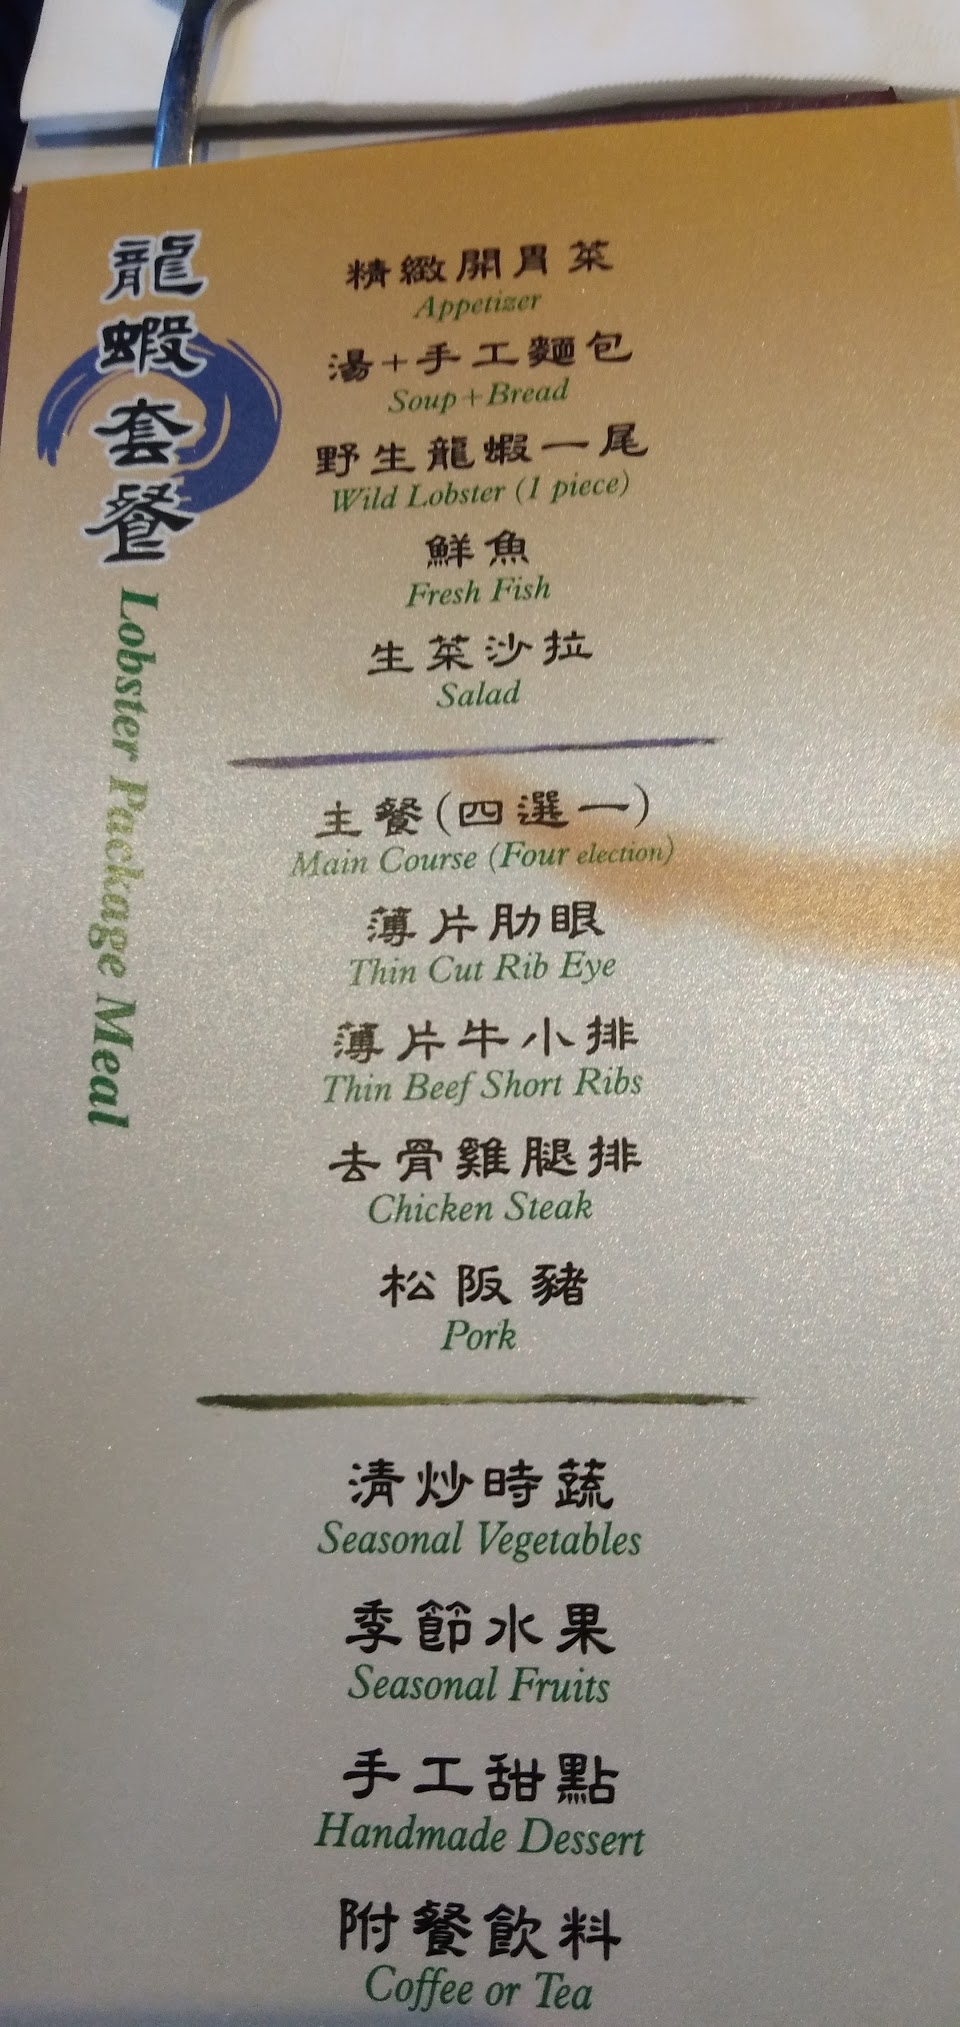 龍蝦套餐
Lobster Package Meal
精緻開胃菜
Appetizer
湯+手工麵包
Soup+Bread
野生龍蝦一尾
Wild Lobster (1 piece)
鮮魚
Fresh Fish
生菜沙拉
Salad
主餐(四選一)
Main Course (Four election)
薄片肋眼
Thin Cut Rib Eye
薄片牛小排
Thin Beef Short Ribs
去骨雞腿排
Chicken Steak
松阪豬
Pork
清炒時蔬
Seasonal Vegetables
季節水果
Seasonal Fruits
手工甜點
Handmade Dessert
附餐飲料
Coffee or Tea